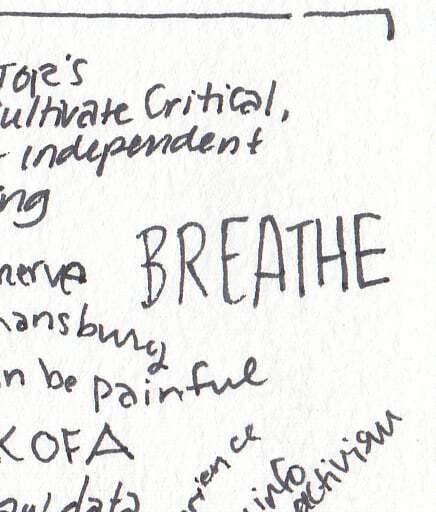 TOR's
ultivate Critical,
independent
ing
BREATHE
nerve
hansburg
n be painful
K OF A
raw data
rience
info
activism